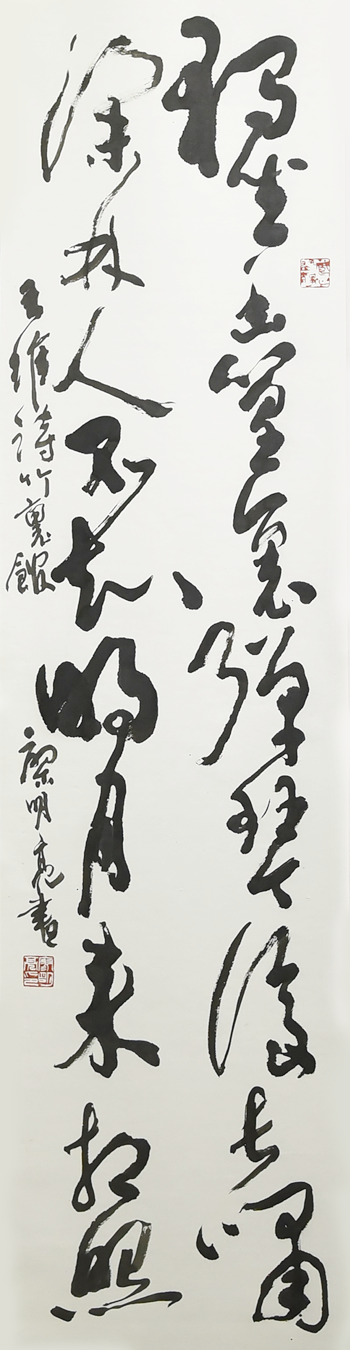 獨坐幽篁裏彈琴復長嘯
深林人不知明月來相照
王維詩竹裏館
明亮書